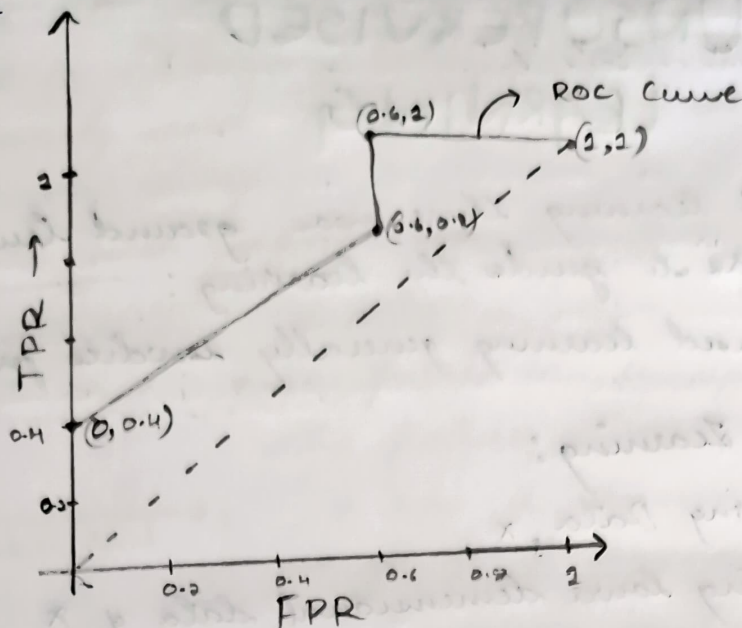 ROC Curve
(0.6, 1)
(1, 1)
1
(0.6, 0.8)
TPR →
0.4
(0, 0.4)
0.2
0.2 0.4 0.6 0.8 1
FPR